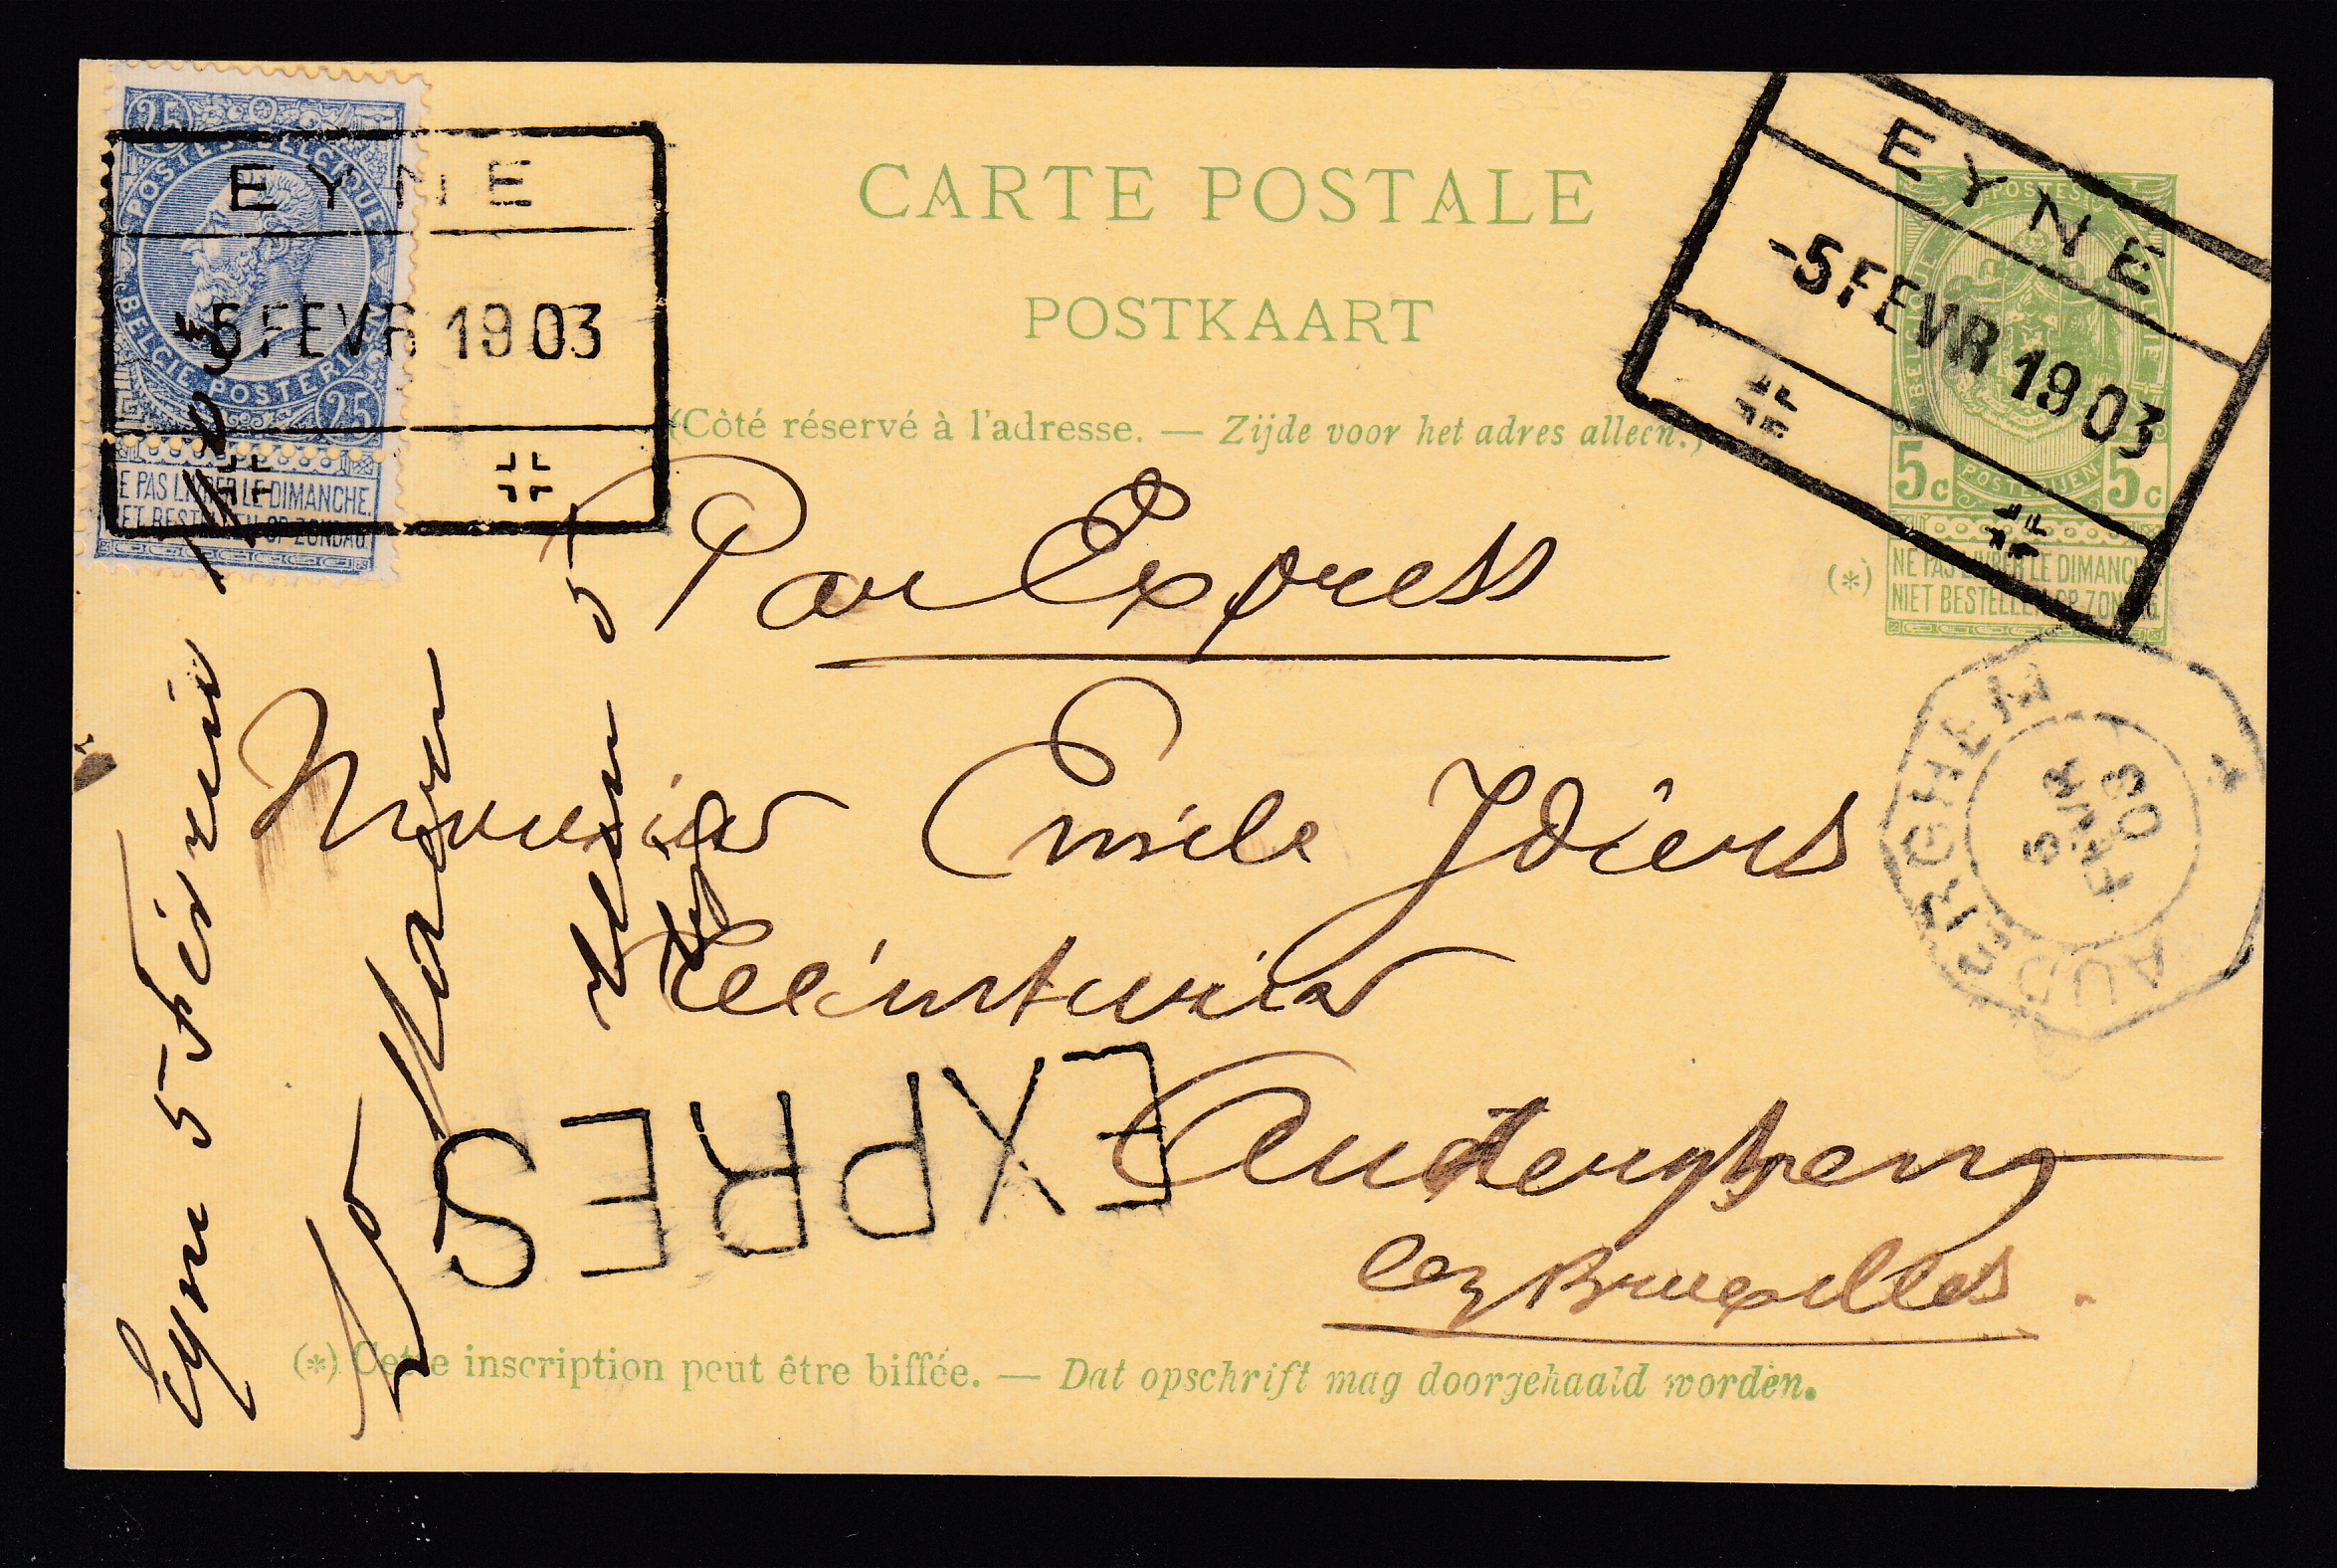 25
POSTES BELGIQUE
BELGIE POSTERIJEN
25
NE PAS LIVRER LE DIMANCHE.
NIET BESTELLEN OP ZONDAG.
EYNE
-5 FEVR 1903
CARTE POSTALE
POSTKAART
(Côté réservé à l'adresse. — Zijde voor het adres alleen.)
EYNE
-5 FEVR 1903
POSTES
BELGIQUE BELGIE
POSTERIJEN
5c 5c
(*)
NE PAS LIVRER LE DIMANCHE.
NIET BESTELLEN OP ZONDAG.
Par Express
Monsieur Emile Idiers
Teinturier
Auderghem
lez Bruxelles.
AUDERGHEM
5
FEVR
03
EXPRES
Eyne 5 Février 1903
(*) Cette inscription peut être biffée. — Dat opschrift mag doorgehaald worden.